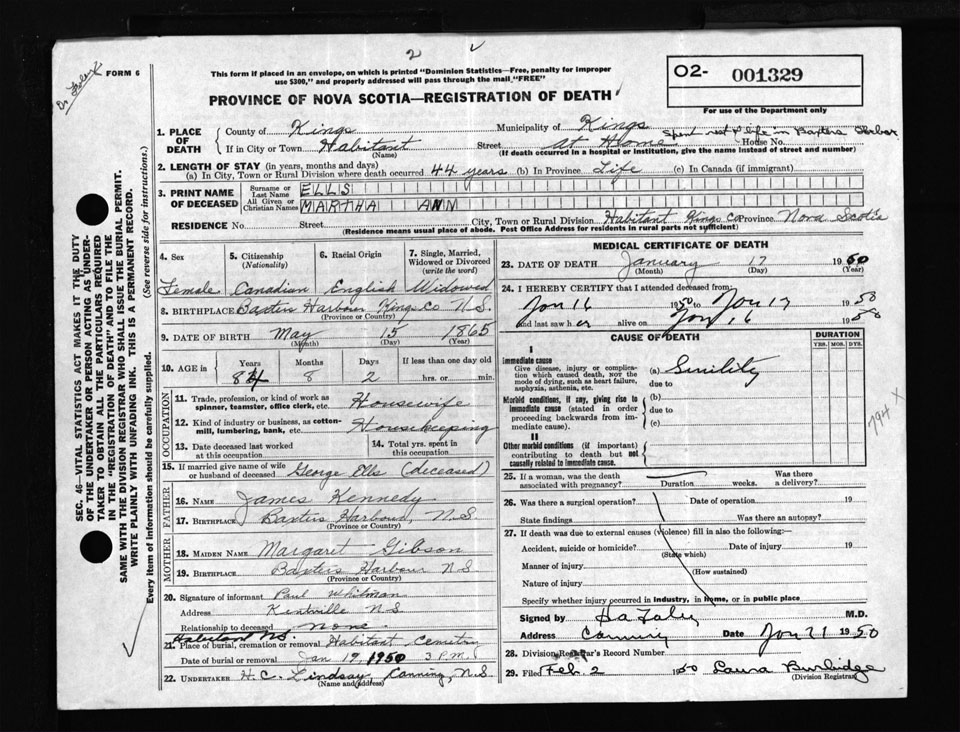 2
FORM 6
This form if placed in an envelope, on which is printed "Dominion Statistics—Free, penalty for improper use $300," and properly addressed will pass through the mail "FREE"
O2- 001329
For use of the Department only
PROVINCE OF NOVA SCOTIA—REGISTRATION OF DEATH
1. PLACE OF DEATH
County of Kings Municipality of Kings
Spent rest of life in Baxters Harbor
If in City or Town Habitant (Name) Street at Home House No.
(If death occurred in a hospital or institution, give the name instead of street and number)
2. LENGTH OF STAY (in years, months and days)
(a) In City, Town or Rural Division where death occurred 44 years (b) In Province Life (c) In Canada (if immigrant)
3. PRINT NAME OF DECEASED
Surname or Last Name ELLS
All Given or Christian Names MARTHA ANN
RESIDENCE No. Street City, Town or Rural Division Habitant Kings Co Province Nova Scotia
(Residence means usual place of abode. Post Office Address for residents in rural parts not sufficient)
4. Sex Female
5. Citizenship (Nationality) Canadian
6. Racial Origin English
7. Single, Married, Widowed or Divorced (write the word) Widowed
8. BIRTHPLACE Baxters Harbour Kings Co N.S.
(Province or Country)
9. DATE OF BIRTH May 15 1865
(Month) (Day) (Year)
10. AGE in Years 84 Months 8 Days 2 If less than one day old hrs. or min.
OCCUPATION
11. Trade, profession, or kind of work as spinner, teamster, office clerk, etc. Housewife
12. Kind of industry or business, as cotton-mill, lumbering, bank, etc. Housekeeping
13. Date deceased last worked at this occupation
14. Total yrs. spent in this occupation
15. If married give name of wife or husband of deceased George Ells (deceased)
FATHER
16. NAME James Kennedy
17. BIRTHPLACE Baxters Harbour, N.S
(Province or Country)
MOTHER
18. MAIDEN NAME Margaret Gibson
19. BIRTHPLACE Baxters Harbour N S
(Province or Country)
20. Signature of informant Paul Whitman
Address Kentville N S
Relationship to deceased none
Habitant N.S.
21. Place of burial, cremation or removal Habitant Cemetry
Date of burial or removal Jan 19, 1950 3 P.M.
22. UNDERTAKER H. C. Lindsay Canning, N.S.
(Name and address)
MEDICAL CERTIFICATE OF DEATH
23. DATE OF DEATH January 17 1950
(Month) (Day) (Year)
24. I HEREBY CERTIFY that I attended deceased from:
Jan 16 1950 to Jan 17 1950
and last saw her alive on Jan 16 1950
CAUSE OF DEATH
DURATION
YRS. MOS. DYS.
I
Immediate cause
Give disease, injury or complication which caused death, NOT the mode of dying, such as heart failure, asphyxia, asthenia, etc.
(a) Senility
due to
Morbid conditions, if any, giving rise to immediate cause (stated in order proceeding backwards from immediate cause).
(b)
due to
(c)
II
Other morbid conditions (if important) contributing to death but not causally related to immediate cause.
794 X
25. If a woman, was the death associated with pregnancy? Duration weeks. Was there a delivery?
26. Was there a surgical operation? Date of operation 19
State findings Was there an autopsy?
27. If death was due to external causes (violence) fill in also the following:
Accident, suicide or homicide? Date of injury 19
(State which)
Manner of injury
(How sustained)
Nature of injury
Specify whether injury occurred in industry, in home, or in public place
Signed by M.D.
Address Canning Date Jan 21 1950
28. Division Registrar's Record Number
29. Filed Feb. 2 1950 Laura Burbidge
(Division Registrar)
SEC. 46—VITAL STATISTICS ACT MAKES IT THE DUTY OF THE UNDERTAKER OR PERSON ACTING AS UNDERTAKER TO OBTAIN ALL THE PARTICULARS REQUIRED IN THE "REGISTRATION OF DEATH" AND TO FILE THE SAME WITH THE DIVISION REGISTRAR WHO SHALL ISSUE THE BURIAL PERMIT.
WRITE PLAINLY WITH UNFADING INK. THIS IS A PERMANENT RECORD.
Every item of information should be carefully supplied. (See reverse side for instructions.)